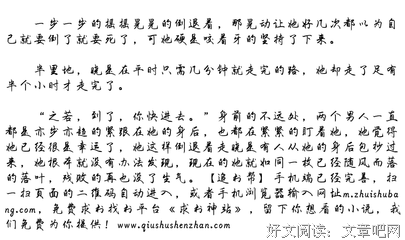 一步一步的摇摇晃晃的倒退着，那晃动让她好几次都以为自
己就要倒了就要死了，可她硬是咬着牙的坚持了下来。
半里地，晚是在平时只需几分钟就走完的路，她却走了足有
半个小时才走完了。
“之若，到了，你快进去。”身前的不远处，两个男人一直
都是亦步亦趋的紧跟在她的身后，也都在紧紧的盯着她，她觉得
她已经很是幸运了，她这样倒退着走晚是有人从她的身后包抄过
来，她根本就没有办法发现，现在的她就如同一枚已经随风而落
的落叶，残败的再也没了生气。【追书帮】手机端已经完善，扫
一扫页面的二维码自动进入，或者手机浏览器输入网址m.zhuishuba
ng.com，免费求书找书平台《求书神站》，留下你想看的小说，我
们免费为你提供！www.qiushushenzhan.com
好文阅读：文章吧网